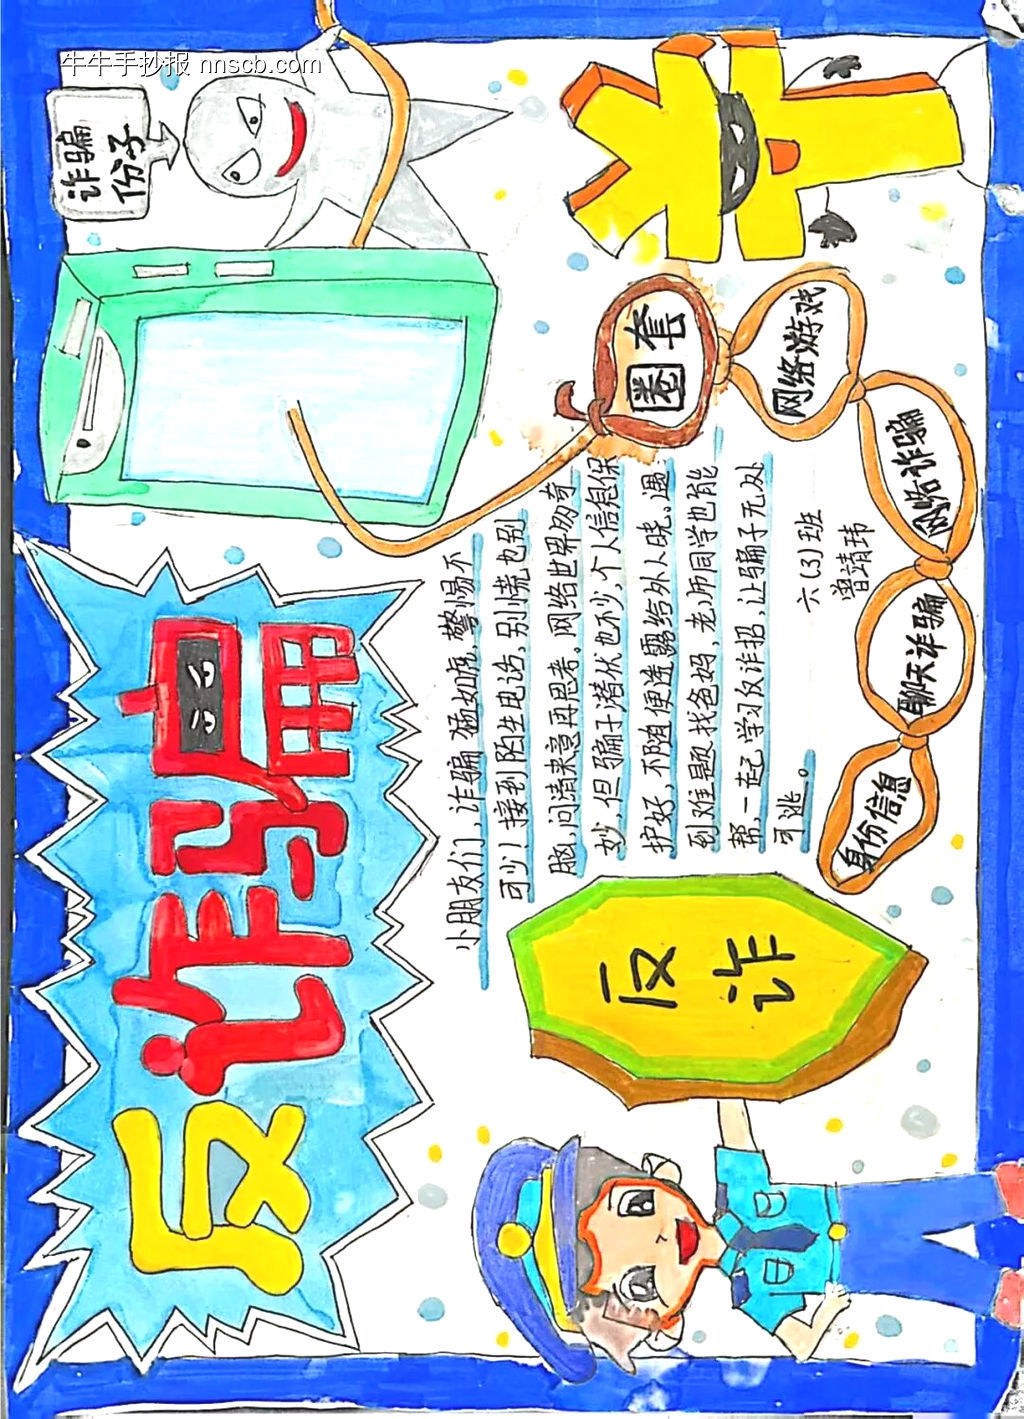 牛牛手抄报 nnscb.com
反诈骗
诈骗
份子
小朋友们，诈骗猛如虎，警惕不
可少！接到陌生电话，别慌也别
脑，问清来意再思考。网络世界场奇
妙，但骗子潜伏也不少，个人信息保
护好，不随便透露给外人晓。遇
到难题找爸妈，老师同学也能
帮，一起学习反诈招，让骗子无处
可逃。
六(3)班
曾靖玮
圈套
网络游戏
网络诈骗
聊天诈骗
身份信息
反
诈